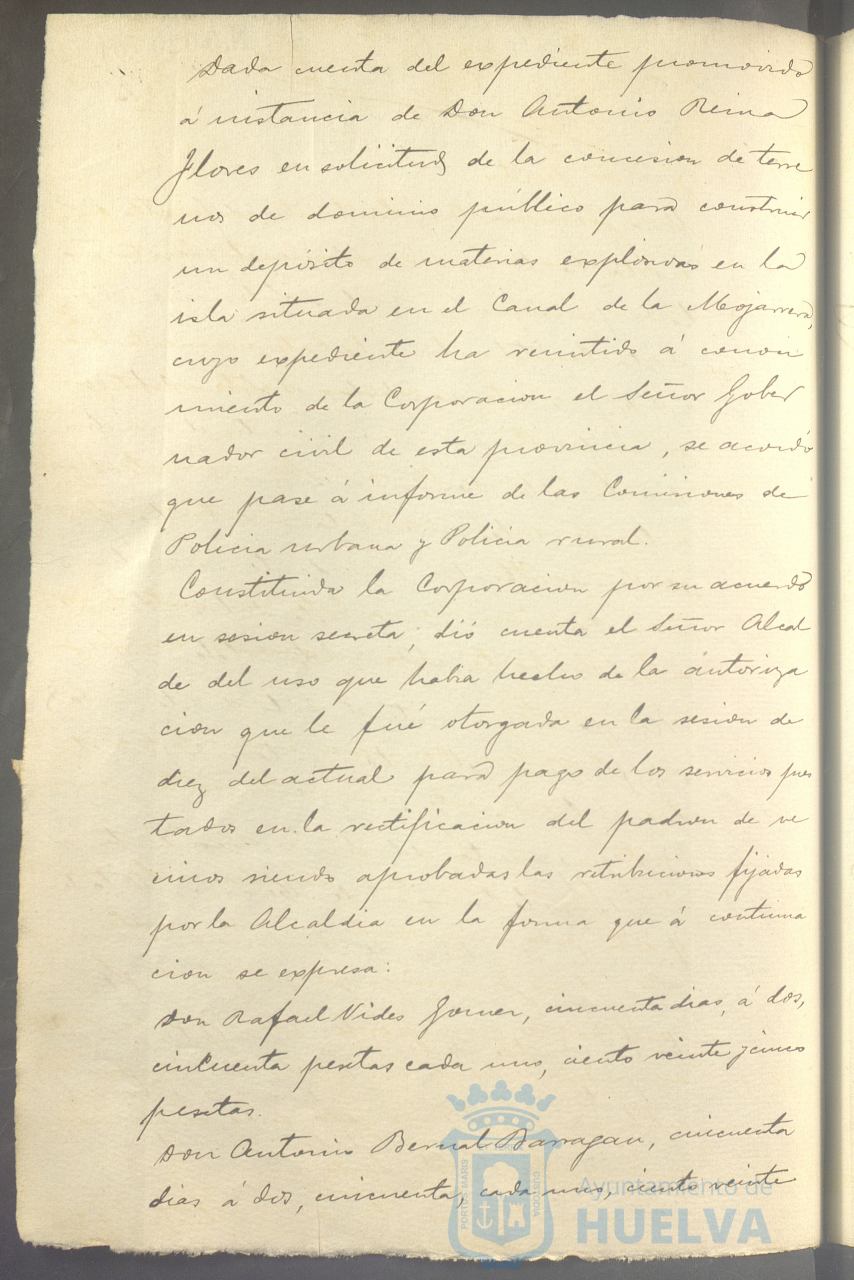 Dada cuenta del expediente promovido
á instancia de Don Antonio Reina
Flores en solicitud de la concesion de terre
nos de dominio público para construir
un depósito de materias explosivas en la
isla situada en el Canal de la Mojarrera,
cuyo expediente ha remitido á conoci
miento de la Corporacion el Señor Gober
nador civil de esta provincia, se acordó
que pase á informe de las Comisiones de
Policia urbana y Policia rural.
Constituida la Corporacion por su acuerdo
en sesion secreta, dió cuenta el Señor Alcal
de del uso que habia hecho de la autoriza
cion que le fué otorgada en la sesion de
diez del actual para pago de los servicios pres
tados en la rectificacion del padron de ve
cinos siendo aprobadas las retribuciones fijadas
por la Alcaldia en la forma que á continua
cion se expresa:
Don Rafael Vides, cincuenta dias, á dos,
cincuenta pesetas cada uno, ciento veinte y cinco
pesetas.
Don Antonio Bernal Barragan, cincuenta
dias á dos, cincuenta, cada uno, ciento veinte
PORTUS MARIS
CUSTODIA
Ayuntamiento de
HUELVA